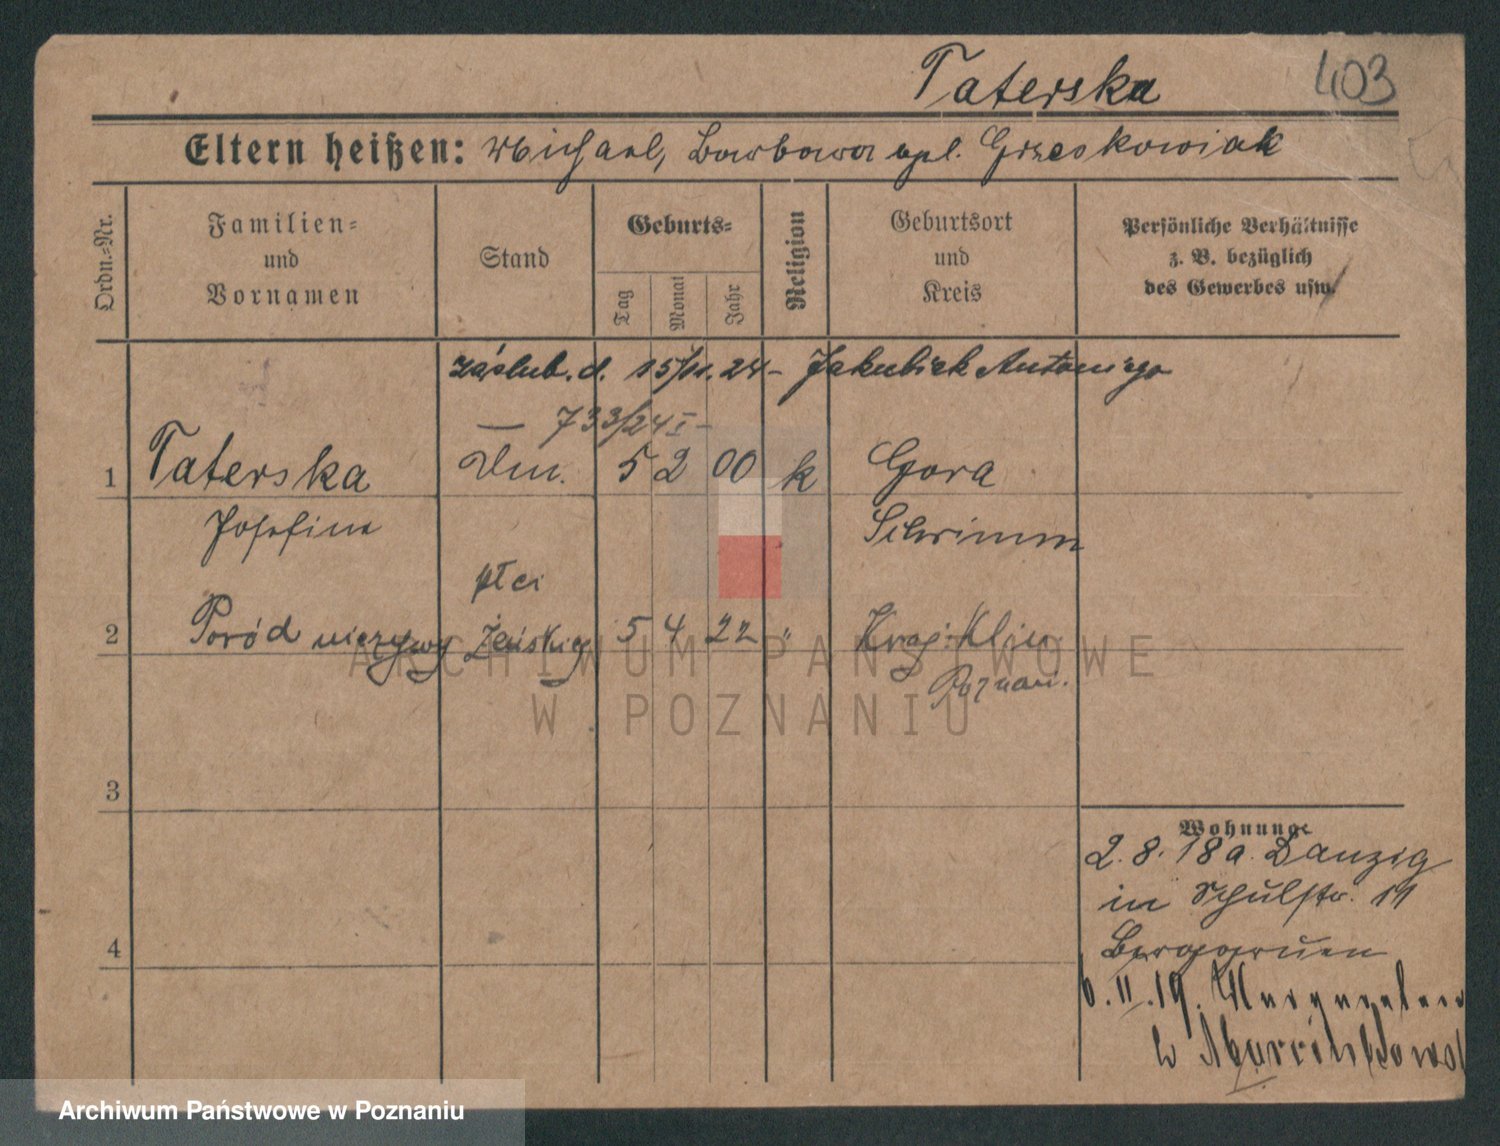 Taterska 403
Eltern heißen: Michael, Barbara gel. Grzeskowiak
Ordn.-Nr.
Familien=
und
Vornamen
Stand
Geburts=
Tag
Monat
Jahr
Religion
Geburtsort
und
Kreis
Persönliche Verhältnisse
z. B. bezüglich
des Gewerbes usw.
záslub. d. 15/11. 24 - Jakubiak Antoniego
— 733/24 I -
1 Taterska Dm. 5 2 00 k Gora
Josefina Schrimm
płci
2 Poród nieżywy żeńskiej 5 4 22 " Kraj. Klin.
Poznań.
3
Wohnung
2. 8. 18 a. Danzig
in Schulstr. 11
4
6. II. 19.
ARCHIWUM PAŃSTWOWE
W POZNANIU
Archiwum Państwowe w Poznaniu